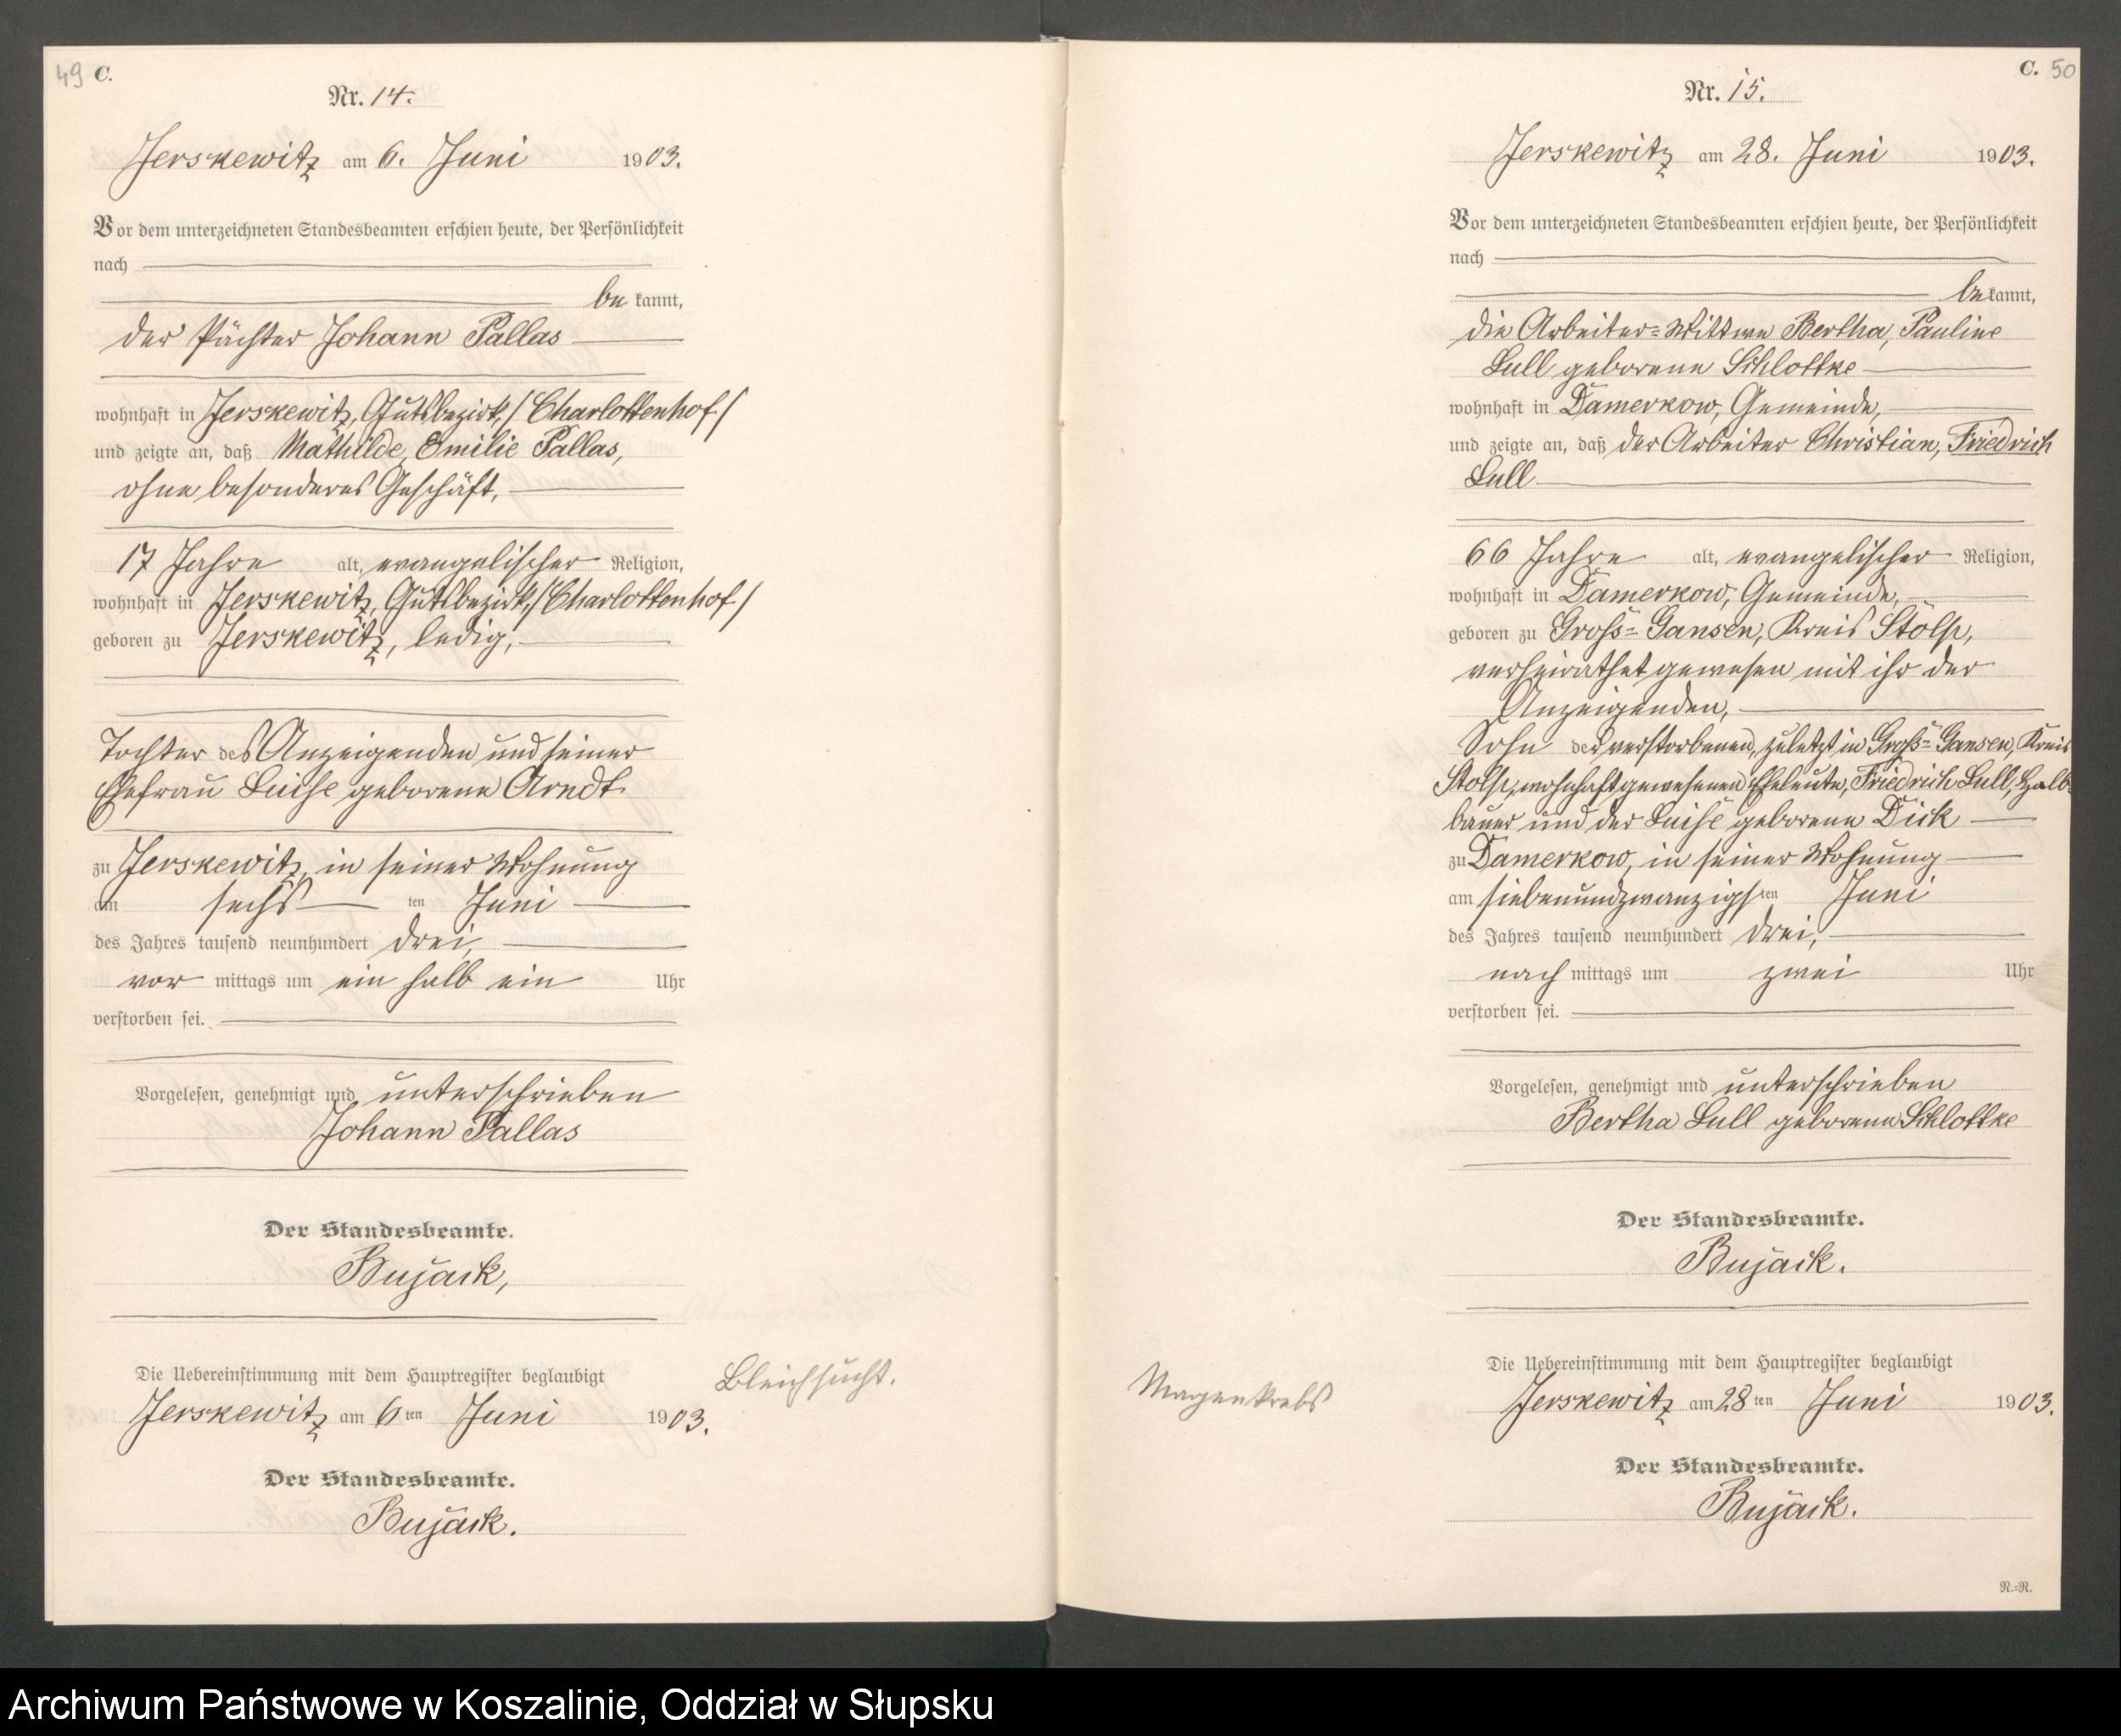 49 C.
Nr. 14.
Jerskewitz am 6. Juni 1903.
Vor dem unterzeichneten Standesbeamten erschien heute, der Persönlichkeit
nach
be kannt,
der Pächter Johann Pallas
wohnhaft in Jerskewitz, Gutsbezirk, /Charlottenhof/
und zeigte an, daß Mathilde, Emilie Pallas,
ohne besonderes Geschäft,
17 Jahre alt, evangelischer Religion,
wohnhaft in Jerskewitz, Gutsbezirk, /Charlottenhof/
geboren zu Jerskewitz, ledig,
Tochter des Anzeigenden und seiner
Ehefrau Luise geborene Arndt
zu Jerskewitz, in seiner Wohnung
am sechsten Juni
des Jahres tausend neunhundert drei,
vor mittags um ein halb ein Uhr
verstorben sei.
Vorgelesen, genehmigt und unterschrieben
Johann Pallas
Der Standesbeamte.
Bujack,
Die Uebereinstimmung mit dem Hauptregister beglaubigt
Bleichsucht.
Jerskewitz am 6ten Juni 1903.
Der Standesbeamte.
Bujack.
C. 50
Nr. 15.
Jerskewitz am 28. Juni 1903.
Vor dem unterzeichneten Standesbeamten erschien heute, der Persönlichkeit
nach
be kannt,
die Arbeiter=Wittwe Bertha, Pauline
Lull geborene Schlottke
wohnhaft in Damerkow, Gemeinde,
und zeigte an, daß der Arbeiter Christian, Friedrich
Lull
66 Jahre alt, evangelischer Religion,
wohnhaft in Damerkow, Gemeinde,
geboren zu Gross=Gansen, Kreis Stolp,
verheirathet gewesen mit ihr der
Anzeigenden,
Sohn der verstorbenen, zuletzt in Gross=Gansen, Kreis
Stolp, wohnhaft gewesenen Eheleute, Friedrich Lull, Halb=
bauer und der Luise geborene Dick
zu Damerkow, in seiner Wohnung
am siebenundzwanzigsten Juni
des Jahres tausend neunhundert drei,
nach mittags um zwei Uhr
verstorben sei.
Vorgelesen, genehmigt und unterschrieben
Bertha Lull geborene Schlottke
Der Standesbeamte.
Bujack.
Die Uebereinstimmung mit dem Hauptregister beglaubigt
Magenkrebs
Jerskewitz am 28ten Juni 1903.
Der Standesbeamte.
Bujack.
N.=N.
Archiwum Państwowe w Koszalinie, Oddział w Słupsku